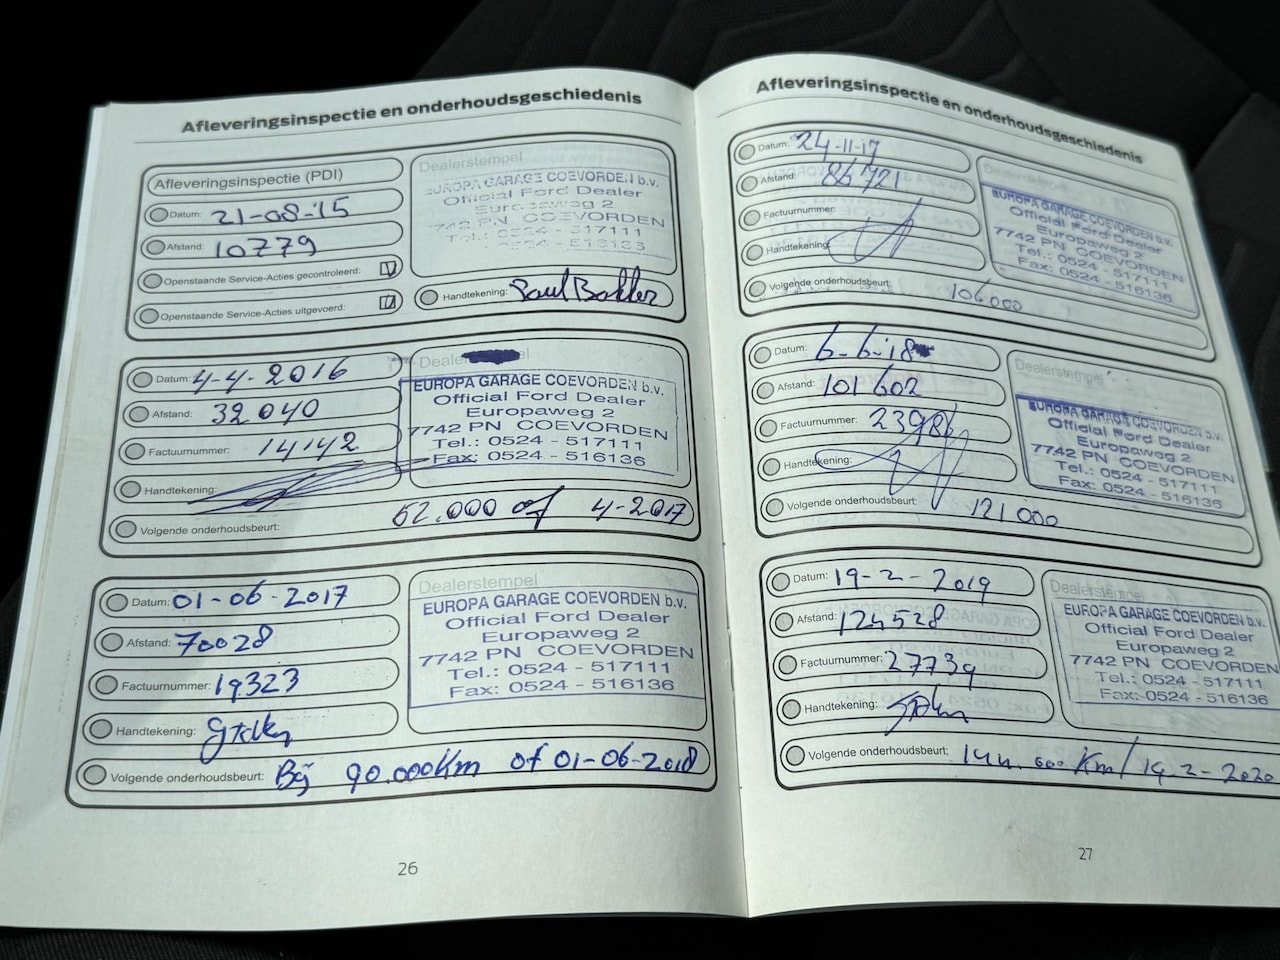 Afleveringsinspectie en onderhoudsgeschiedenis
Afleveringsinspectie (PDI)
Datum: 21-08-'15
Afstand: 10779
Openstaande Service-Acties gecontroleerd:
Openstaande Service-Acties uitgevoerd:
Dealerstempel
EUROPA GARAGE COEVORDEN b.v.
Official Ford Dealer
Europaweg 2
7742 PN COEVORDEN
Tel.: 0524 - 517111
0524 - 516136
Handtekening: Paul Bakker
Datum: 4-4-2016
Afstand: 32040
Factuurnummer: 14142
Handtekening:
Volgende onderhoudsbeurt: 52.000 of 4-2017
EUROPA GARAGE COEVORDEN b.v.
Official Ford Dealer
Europaweg 2
7742 PN COEVORDEN
Tel.: 0524 - 517111
Fax: 0524 - 516136
Datum: 01-06-2017
Afstand: 70028
Factuurnummer: 19323
Handtekening:
Volgende onderhoudsbeurt: Bij 90.000km of 01-06-2018
Dealerstempel
EUROPA GARAGE COEVORDEN b.v.
Official Ford Dealer
Europaweg 2
7742 PN COEVORDEN
Tel.: 0524 - 517111
Fax: 0524 - 516136
26
Afleveringsinspectie en onderhoudsgeschiedenis
Datum: 24-11-17
Afstand: 86721
Factuurnummer:
Handtekening:
Volgende onderhoudsbeurt: 106000
EUROPA GARAGE COEVORDEN b.v.
Official Ford Dealer
Europaweg 2
7742 PN COEVORDEN
Tel.: 0524 - 517111
Fax: 0524 - 516136
Datum: 6-6-'18
Afstand: 101602
Factuurnummer: 23986
Handtekening:
Volgende onderhoudsbeurt: 121000
Dealerstempel
EUROPA GARAGE COEVORDEN b.v.
Official Ford Dealer
Europaweg 2
7742 PN COEVORDEN
Tel.: 0524 - 517111
Fax: 0524 - 516136
Datum: 19-2-2019
Afstand: 124528
Factuurnummer: 27739
Handtekening:
Volgende onderhoudsbeurt: 144.000 Km/ 19-2-2020
Dealerstempel
EUROPA GARAGE COEVORDEN b.v.
Official Ford Dealer
Europaweg 2
7742 PN COEVORDEN
Tel.: 0524 - 517111
Fax: 0524 - 516136
27